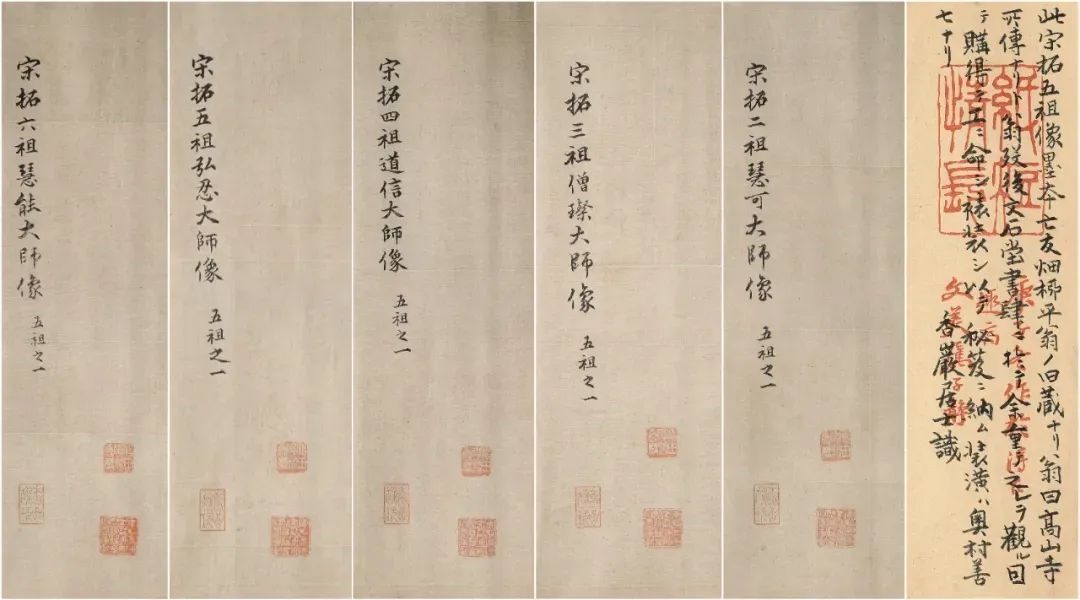 此宋拓五祖像墨本亡友畑柳平翁ノ旧蔵ナリ翁曰高山寺
所傳ナリト翁歿後文石堂書肆ニ於テ余重テ之觀ル因
テ購得シ工ニ命シ裱装シ以テ秘笈ニ納ム装潢ハ奥村善
七ナリ
香巖居士識
紙短
情長
宋拓二祖慧可大師像 五祖之一
宋拓三祖僧璨大師像 五祖之一
宋拓四祖道信大師像 五祖之一
宋拓五祖弘忍大師像 五祖之一
宋拓六祖慧能大師像 五祖之一